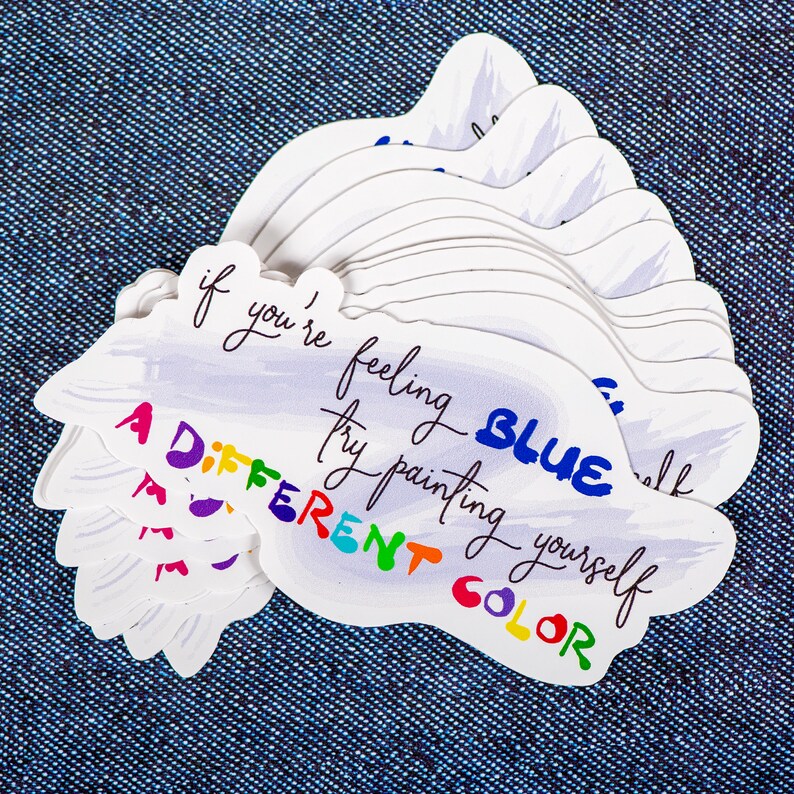 if you're feeling BLUE
try painting yourself
A DiFFERENT COLOR
self